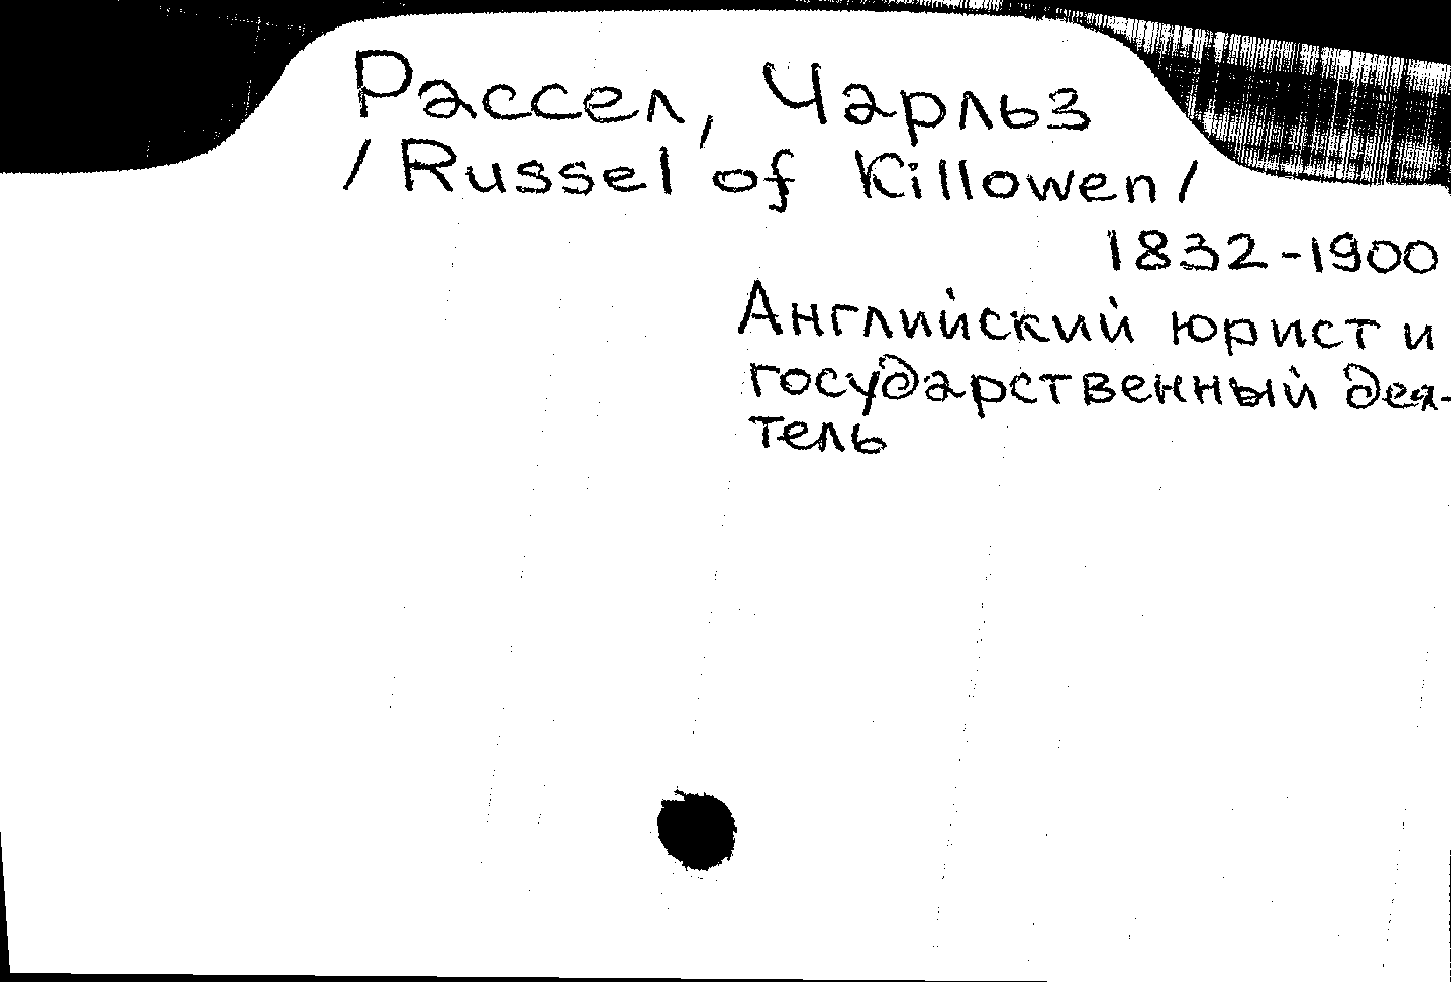 Рассел, Чарльз
/Russel of Killowen/
1832-1900
Английский юрист и
государственный дея-
тель